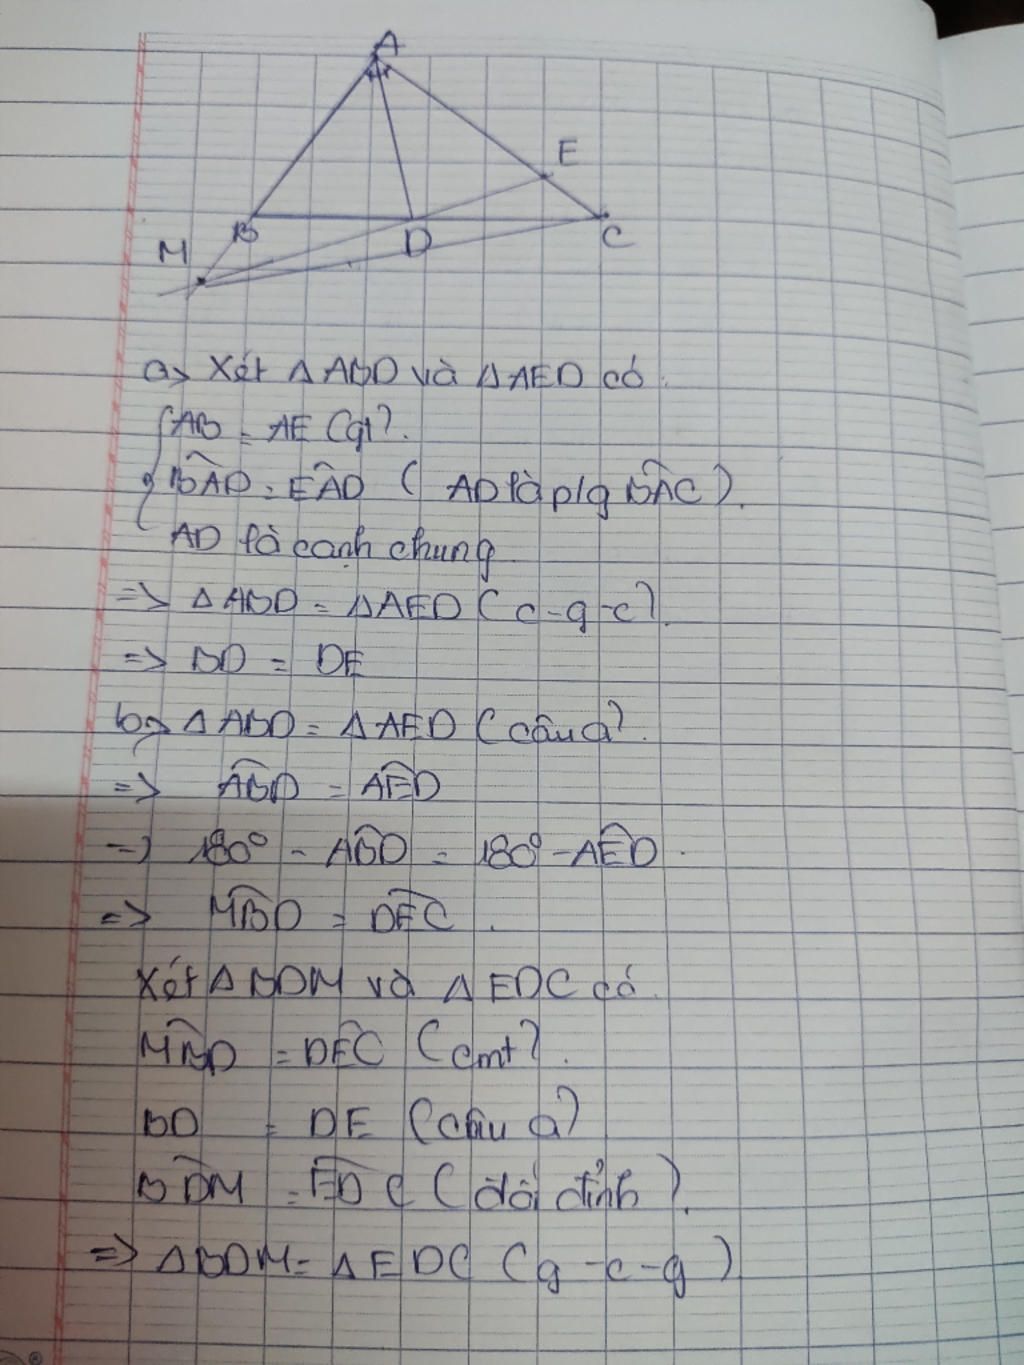 A
E
B
D
C
M
a> Xét ΔABD và ΔAED có.
AB = AE (gt).
BÂD = EÂD ( AD là p/g BÂC).
AD là cạnh chung
=> ΔABD = ΔAED (c-g-c).
=> BD = DE
b> ΔABD = ΔAED (câu a).
=> ABD̂ = AÊD
=> 180° - AB̂D = 180° - AÊD.
=> MB̂D = DÊC.
Xét ΔBDM và ΔEDC có.
MB̂D = DÊC (cmt).
BD = DE (câu a)
BD̂M = ED̂C (đối đỉnh).
=> ΔBDM = ΔEDC (g-c-g)